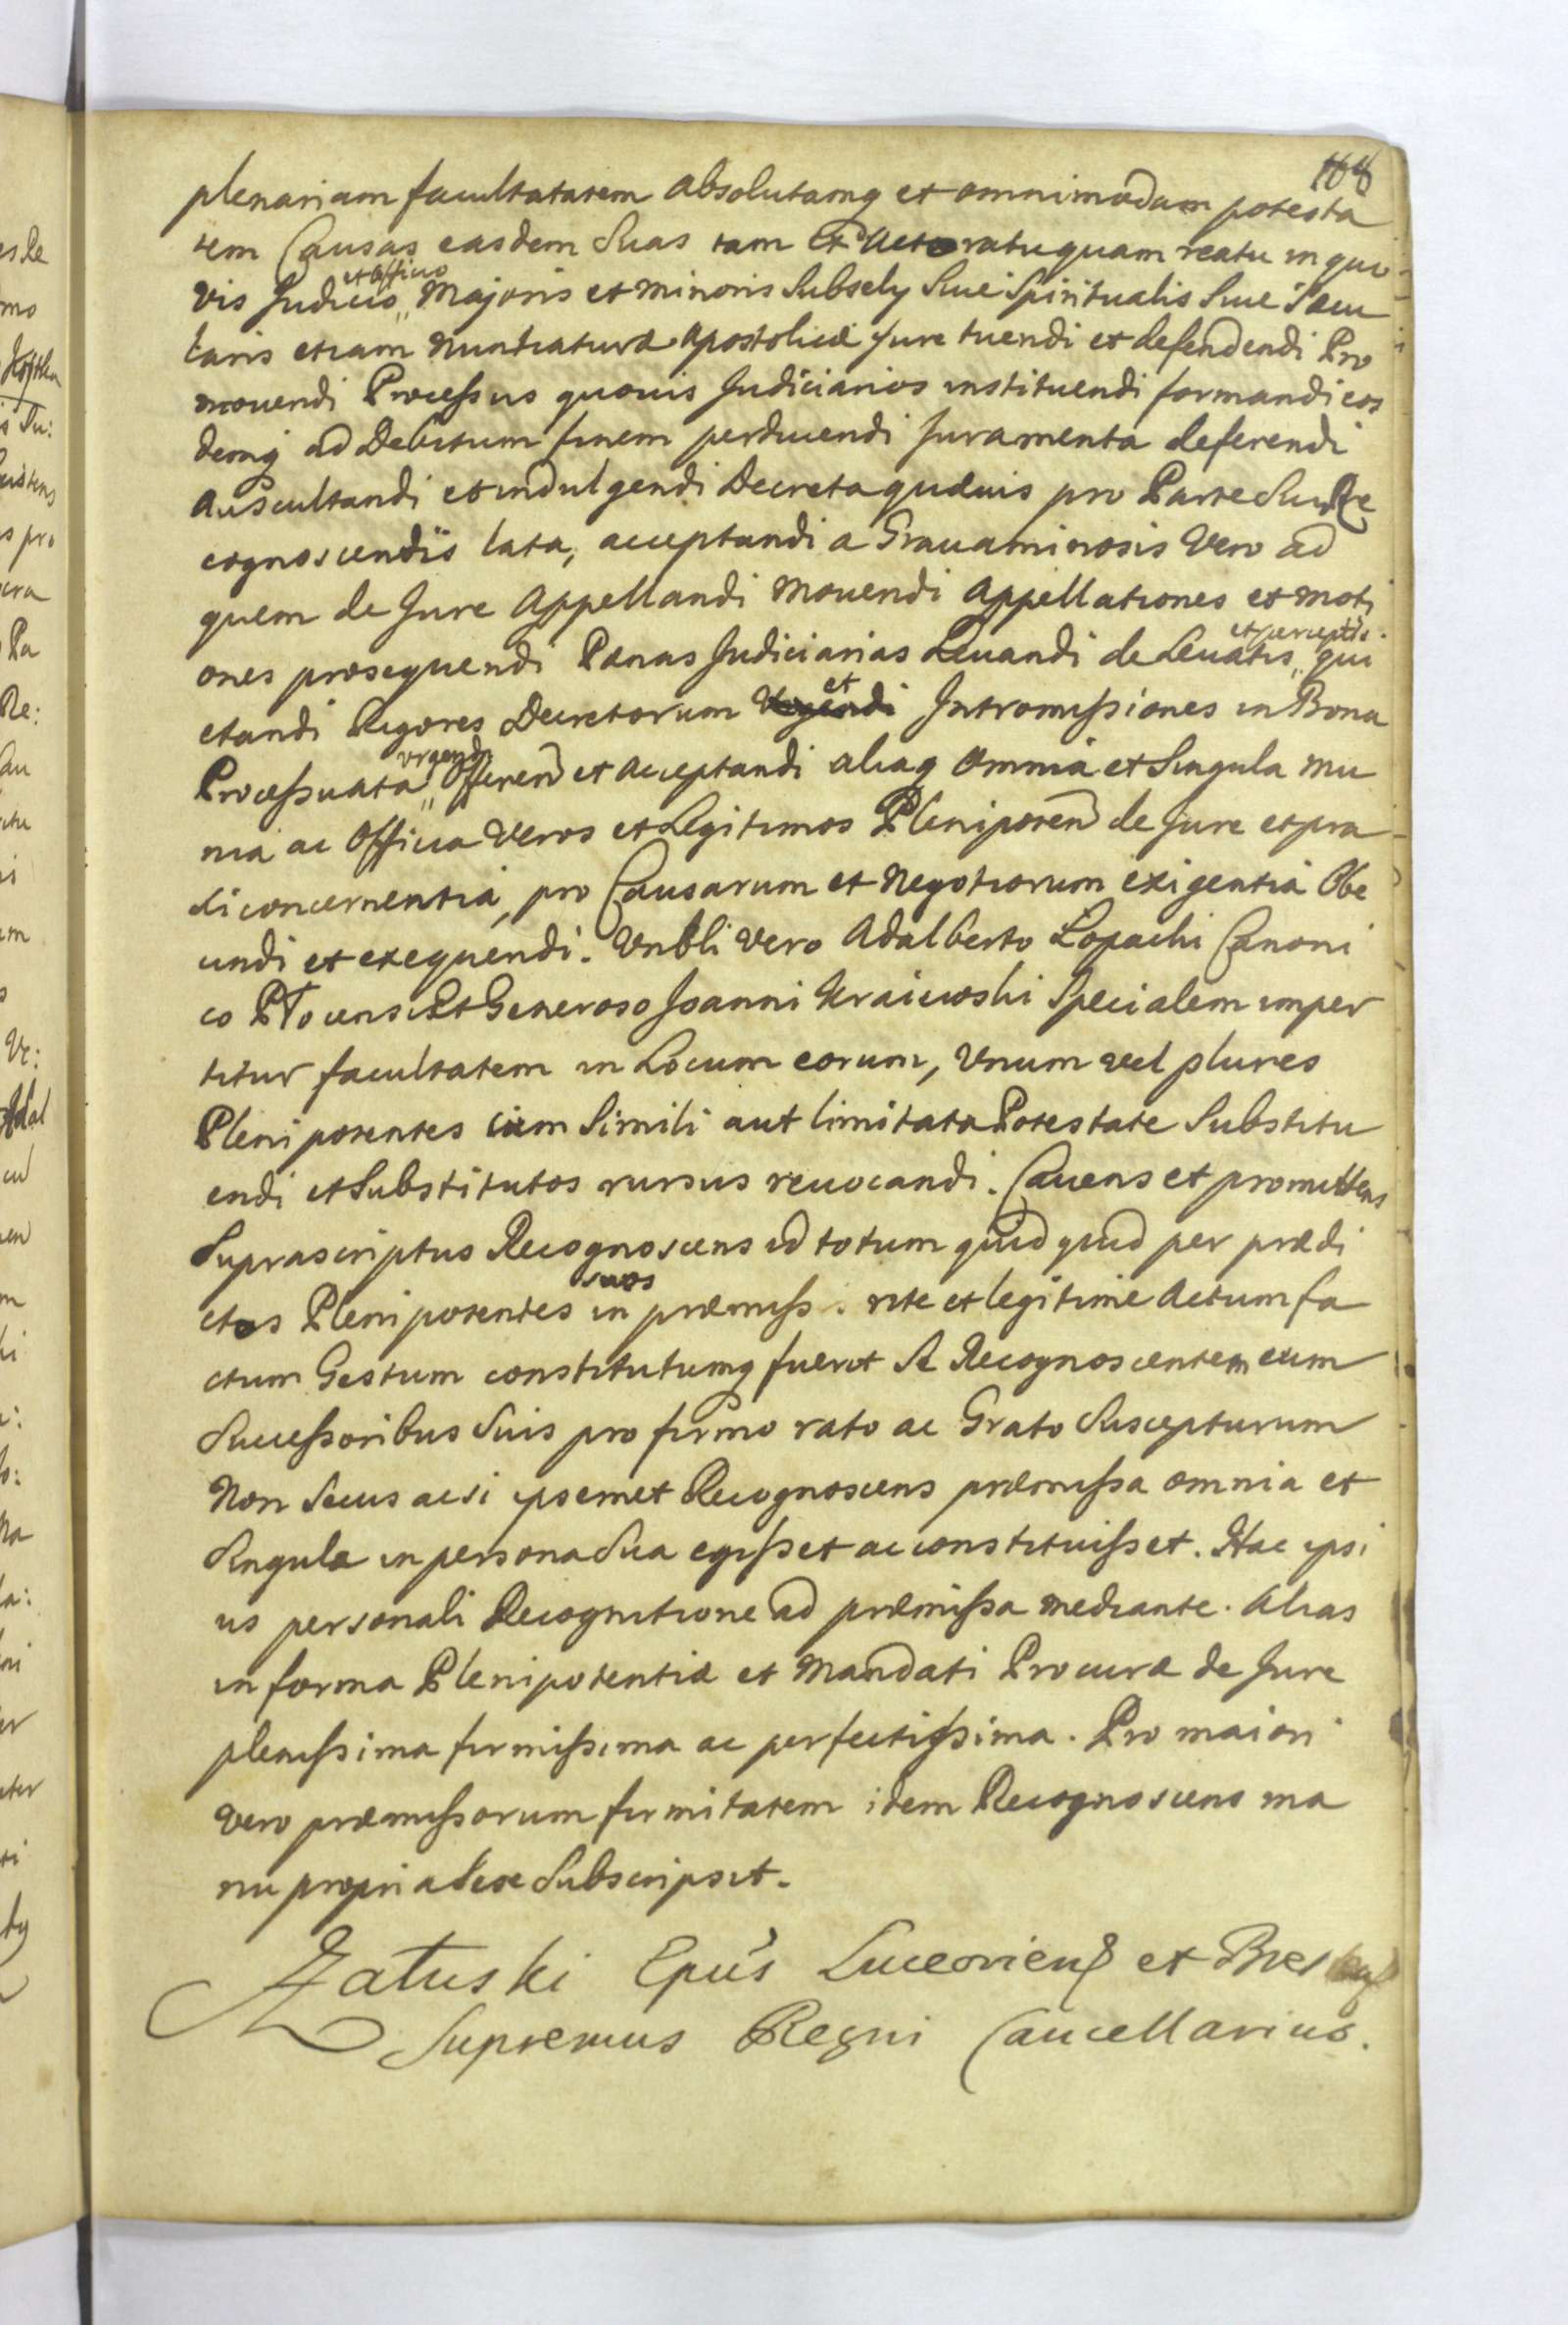 168
plenariam facultatatem absolutamq et omnimodam potesta
tem Causas easdem Suas tam Actoratu quam reatu in quo
vis Judicio et Officio Majoris et minoris Subsely Siue Spiritualis Siue Sæcu
laris etiam Nuntiaturæ Apostolicæ jure tuendi et defendendi Pro
mouendi Processus quouis Judiciarios instituendi formandi eos
demq ad Debitum finem perducendi Juramenta deferendi
Auscultandi et indulgendi Decreta quæuis pro Parte Sui Re
cognoscendis lata, acceptandi a Grauaminosis Vero ad
quem de Jure Appellandi Mouendi Appellationes et moti
ones prosequendi Pænas Judiciarias Leuandi de Leuatis et perceptis qui
etandi Rigores Decretorum et Intromissiones in Bona
Processuata urgendi Offeren et Acceptandi aliaq Omnia et Singula mu
nia ac Officia Veros et Legitimos Pleniponen de Jure et pra
xi concernentia, pro Causarum et Negotiorum exigentia Obe
undi et exequendi. Vnbli Vero Adalberto Lopachi Canoni
co Płocensi Et Generoso Joanni Kraiewski Specialem imper
titur facultatem in Locum eorum, Vnum vel plures
Plenipotentes cum Simili aut limitata Potestate Substitu
endi et Substitutos rursus reuocandi. Cauens et promittens
Suprascriptus Recognoscens id totum quidquid per prædi
ctos Plenipotentes suos in præmiss s rite et legitime Actum fa
ctum Gestum constitutumq fuerit A Recognoscentem cum
Successoribus Suis pro firmo rato ac Grato Suscepturum
Non Secus ac si ipsemet Recognoscens præmissa omnia et
Singula in persona Sua egisset ac constituisset. Hac ipsi
us personali Recognitione ad præmissa mediante. Alias
in forma Plenipotentiæ et Mandati Procuræ de Jure
plenissima firmissima ac perfectissima. Pro maiori
Vero præmissorum firmitatem idem Recognoscens ma
nu propria Sese Subscripsit.
AZałuski Epus Luceoriens et Bres
Supremus Regni Cancellarius.